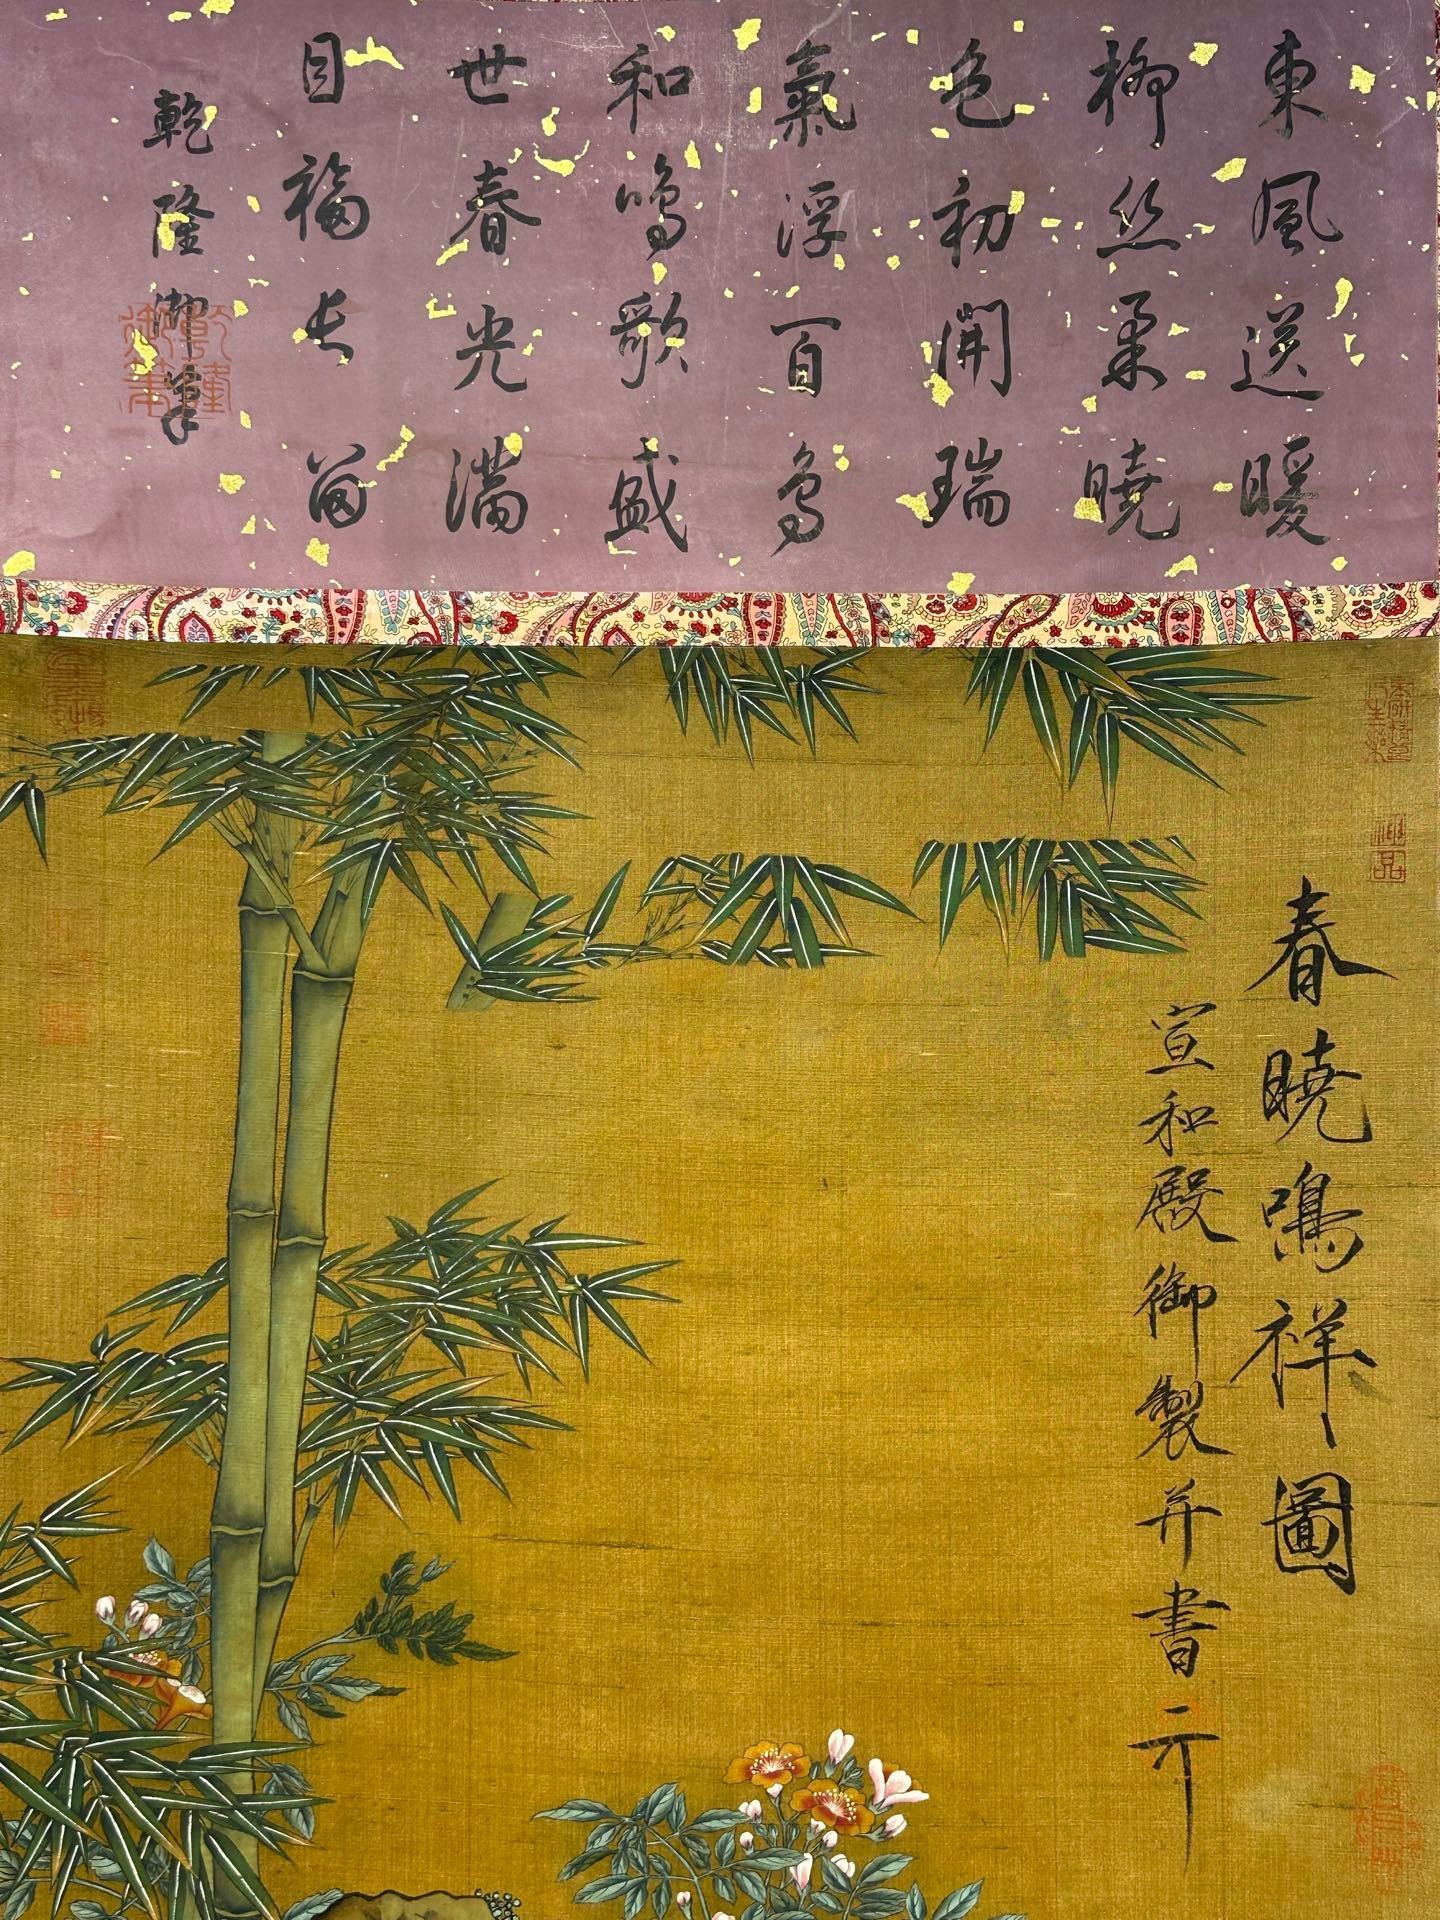 東風送暖
柳丝柔曉
色初開瑞
氣浮百鳥
和鳴歌盛
世春光滿
目福长留
乾隆御筆
春曉鳴祥圖
宣和殿御製并書
神品
乾隆御筆